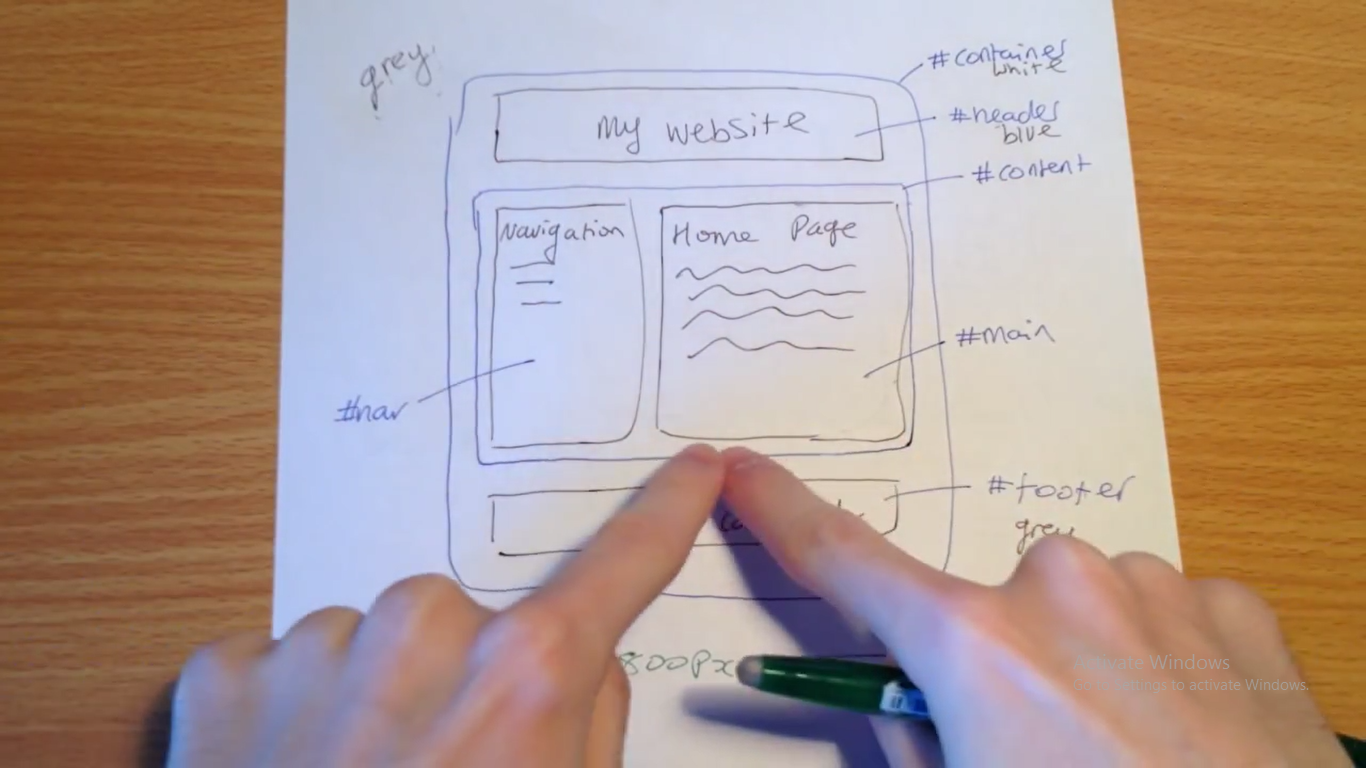 grey
#container
white
My website
#header
blue
#content
Navigation
Home Page
#main
#nav
#footer
grey
800px
Activate Windows
settings to activate Windows.